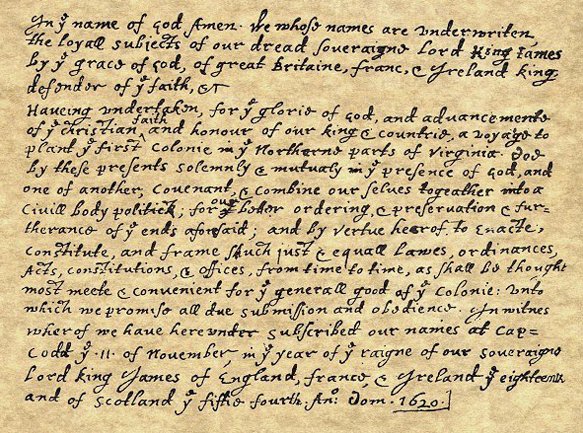 In yͤ name of god Amen. We whose names are underwriten,
the loyall subjects of our dread soveraigne Lord King James
by yͤ grace of god, of great Britaine, franc, & Ireland king,
defender of yͤ faith, &c
Haveing undertaken, for yͤ glorie of god, and advancemente
of yͤ christian faith and honour of our king & countrie, a voyage to
plant yͤ first colonie in yͤ Northerne parts of Virginia. Doe
by these presents solemnly & mutualy in yͤ presence of god, and
one of another, covenant, & combine our selves togeather into a
Civill body politick; for our better ordering, & preservation & fur=
therance of yͤ ends aforesaid; and by vertue hearof, to enacte,
constitute, and frame shuch just & equall Lawes, ordinances,
Acts, constitutions, & offices, from time to time, as shall be thought
most meete & convenient for yͤ generall good of yͤ Colonie: unto
which we promise all due submission and obedience. In witnes
wherof we have hereunder subscribed our names at Cap=
Codd yͤ .11. of November, in yͤ year of yͤ raigne of our soveraigne
Lord king James of England, france, & Ireland yͤ eighteenth
and of Scotland yͤ fiftie fourth. Anͦ: Dom. 1620.]